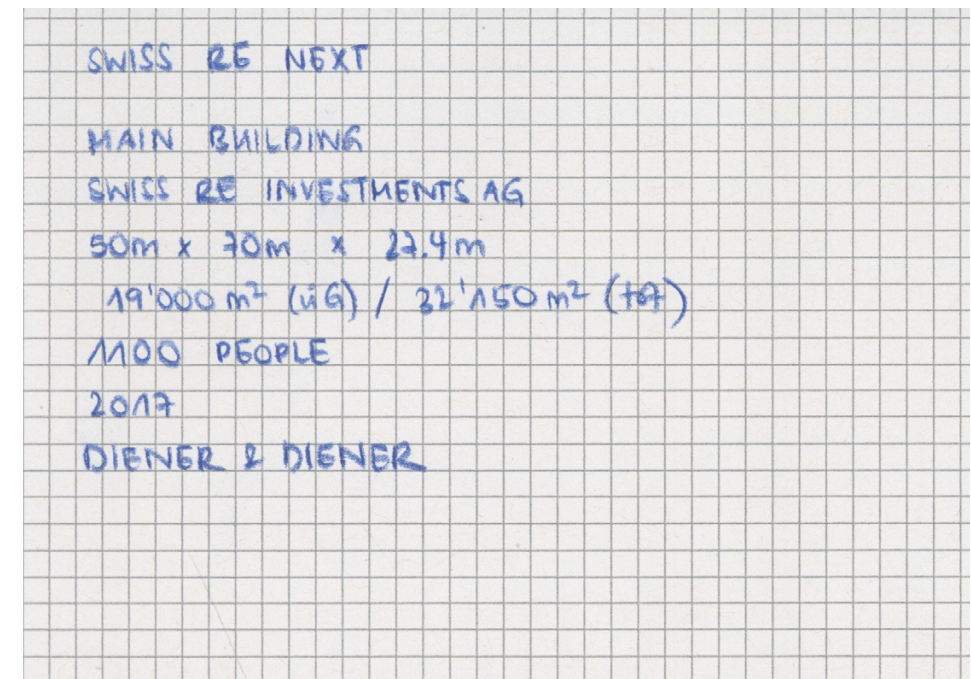 SWISS RE NEXT
MAIN BUILDING
SWISS RE INVESTMENTS AG
50m x 70m x 27.4m
19'000 m² (üG) / 32'150 m² (tot)
1100 PEOPLE
2017
DIENER & DIENER